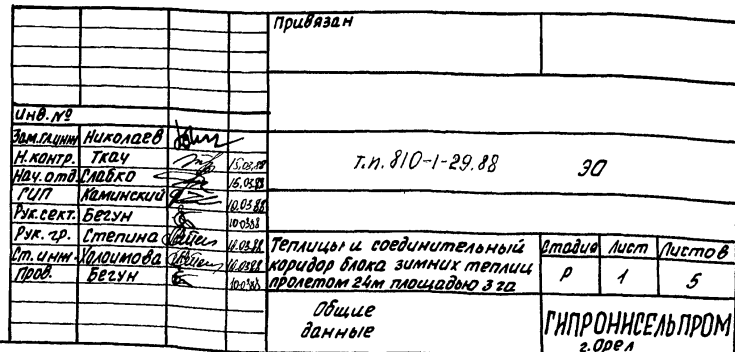 Привязан
Инв. №
Зам.гл.инж Николаев
Н.контр. Ткач 15.03.88
Нач.отд. Слабко 15.03.88
ГИП Каминский 10.03.88
Рук.сект. Бегун 10.03.88
Рук. гр. Степина 10.03.88
Ст. инж. Холоимова 10.03.88
Пров. Бегун 10.03.88
т.п. 810-1-29.88 ЭО
Теплицы и соединительный
коридор блока зимних теплиц
пролетом 24м площадью 3 га
Стадия Лист Листов
Р 1 5
Общие
данные
ГИПРОНИСЕЛЬПРОМ
г.Орел